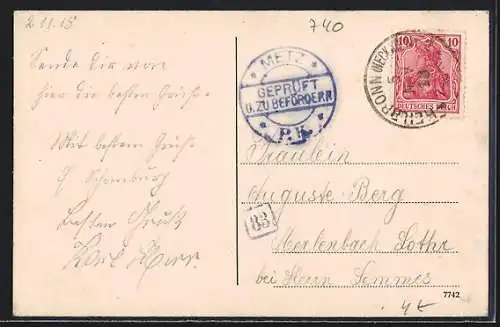 2.11.15
740
Sende dir von
hier die besten Grüße.
Mit bestem Gruß
Schomburg
besten Gruß
Karl
* METZ *
GEPRÜFT
U. ZU BEFÖRDERN
* P.K. *
10 10
DEUTSCHES REICH
Fräulein
Auguste Berg
Merlenbach Lothr
bei Herrn Sommer
83
7742